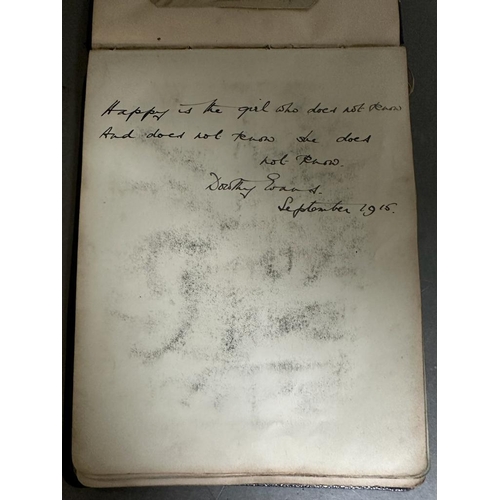 Happy is the girl who does not know
And does not know she does
not know.
Dorothy Evans.
September 1916.